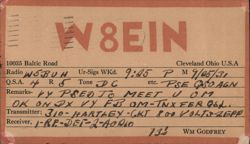 W8EIN
10035 Baltic Road Cleveland Ohio U.S.A
Radio W5BUH Ur-Sigs WKd. 9:25 P M 9/25/31
Q.S.A. 4 R 5 Tone DC etc. PSE QSO AGN
Remarks- VY PSED TO MEET U OM
OK ON DX VY FB OM-TNX FER QSL.
Transmitter: 310-HARTLEY-CKT 800 VOLTS-ZEPP
Receiver, 1-RF-DET-2-AUDIO
73s WM GODFREY